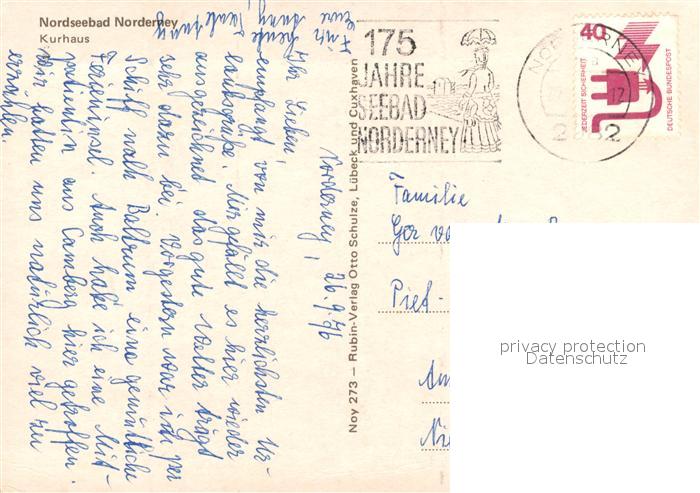 Nordseebad Norderney
Kurhaus
Norderney, 26.9.76
Ihr Lieben,
empfangt von mir die herzlichsten Ur-
laubsgrüße. Mir gefällt es hier wieder
ausgezeichnet das gute Wetter trägt
sehr dazu bei. Vorgestern war ich per
Schiff nach Baltrum eine gemütliche
Ferieninsel. Auch habe ich eine Mit-
patientin aus Camberg hier getroffen.
Wir hatten uns natürlich viel zu
erzählen.
Für heute
Eure
Noy 273 – Rubin-Verlag Otto Schulze, Lübeck und Cuxhaven
175
JAHRE
SEEBAD
NORDERNEY
NORDERNEY
40
JEDERZEIT SICHERHEIT
DEUTSCHE BUNDESPOST
Familie
Ger
Piet-
privacy protection
Datenschutz